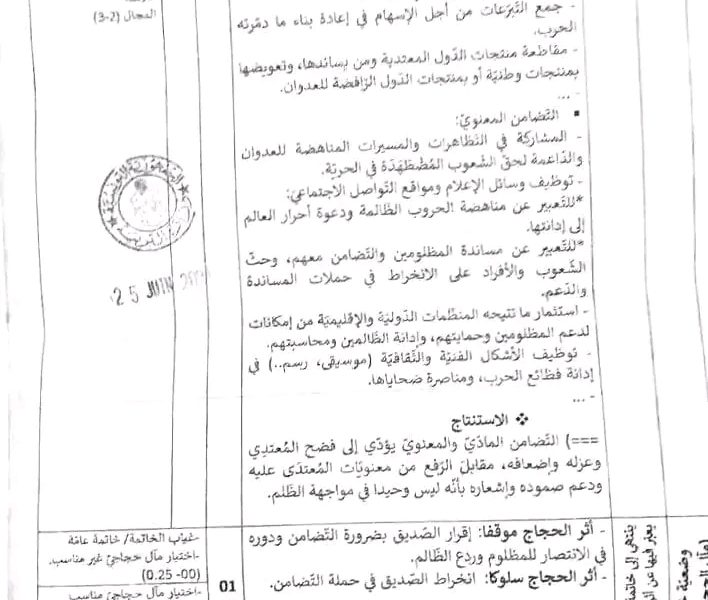 - جمع التّبرّعات من أجل الإسهام في إعادة بناء ما دمّرته
الحرب.
- مقاطعة منتجات الدّول المعتدية ومن يساندها، وتعويضها
بمنتجات وطنيّة أو بمنتجات الدّول الرّافضة للعدوان.
- ...
▪ التّضامن المعنويّ:
- المشاركة في التّظاهرات والمسيرات المناهضة للعدوان
والدّاعمة لحقّ الشّعوب المُضْطَهَدَة في الحريّة.
- توظيف وسائل الإعلام ومواقع التّواصل الاجتماعي:
*للتّعبير عن مناهضة الحروب الظّالمة ودعوة أحرار العالم
إلى إدانتها.
*للتّعبير عن مساندة المظلومين والتّضامن معهم، وحثّ
الشّعوب والأفراد على الانخراط في حملات المساندة
والدّعم.
- استثمار ما تتيحه المنظّمات الدّوليّة والإقليميّة من إمكانات
لدعم المظلومين وحمايتهم، وإدانة الظّالمين ومحاسبتهم.
- توظيف الأشكال الفنيّة والثّقافيّة (موسيقى، رسم..) في
إدانة فظائع الحرب، ومناصرة ضحاياها.
- ...
❖ الاستنتاج
===) التّضامن المادّيّ والمعنويّ يؤدّي إلى فضح المُعتدِي
وعزله وإضعافه، مقابل الرّفع من معنويّات المُعتدَى عليه
ودعم صموده وإشعاره بأنّه ليس وحيدا في مواجهة الظّلم.
- أثر الحجاج موقفا: إقرار الصّديق بضرورة التّضامن ودوره
في الانتصار للمظلوم وردع الظّالم.
- أثر الحجاج سلوكا: انخراط الصّديق في حملة التّضامن.
01
المجال (2-3)
25 JUIN
-غياب الخاتمة/ خاتمة عامّة
-اختيار مآل حجاجيّ غير مناسب.
(00- 0.25)
-اختيار مآل حجاجيّ مناسب
ينتهي إلى خاتمة
يعبّر فيها عن أثر
وضعيّة
(مآل الحجاج